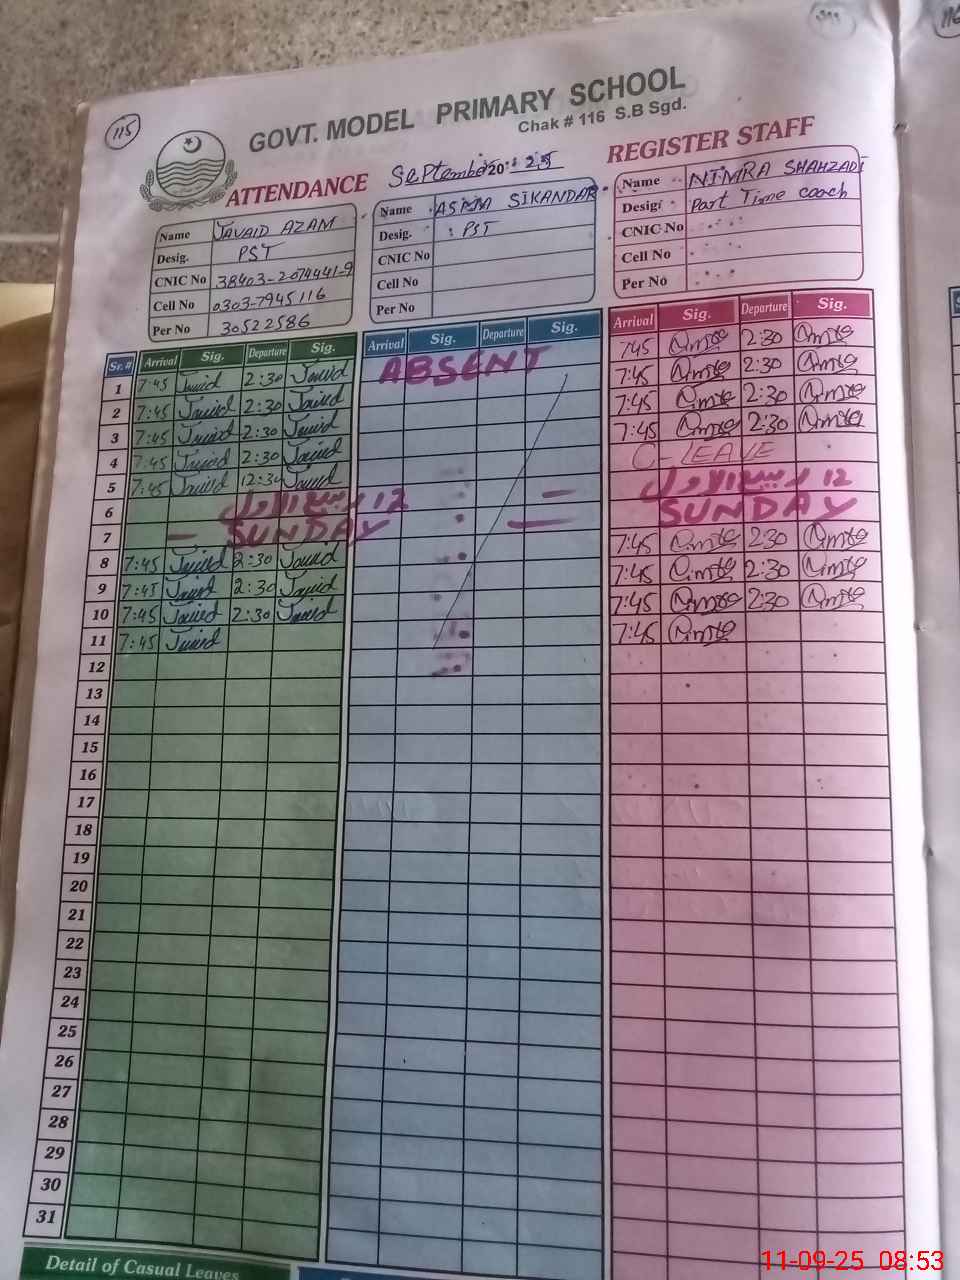 115
GOVT. MODEL PRIMARY SCHOOL
Chak # 116 S.B Sgd.
ATTENDANCE September 2025 REGISTER STAFF
Name JAVAID AZAM
Desig. PST
CNIC No 38403-2074441-9
Cell No 0303-7945116
Per No 30522586
Name ASMA SIKANDAR
Desig. : PST
CNIC No
Cell No
Per No
Name NIMRA SHAHZADI
Desig: Part Time coach
CNIC No
Cell No
Per No
Sr.# Arrival Sig. Departure Sig. Arrival Sig. Departure Sig. Arrival Sig. Departure Sig.
1 7:45 Javid 2:30 Javid ABSENT 7:45 2:30
2 7:45 Javid 2:30 Javid 7:45 2:30
3 7:45 Javid 2:30 Javid 7:45 2:30
4 7:45 Javid 2:30 Javid 7:45 2:30
5 7:45 Javid 12:30 Javid C-LEAVE
6 ۱۲ ربیع الاول — ۱۲ ربیع الاول
7 — SUNDAY — SUNDAY
8 7:45 Javid 2:30 Javid 7:45 2:30
9 7:45 Javid 2:30 Javid 7:45 2:30
10 7:45 Javid 2:30 Javid 7:45 2:30
11 7:45 Javid 7:45
12
13
14
15
16
17
18
19
20
21
22
23
24
25
26
27
28
29
30
31
Detail of Casual Leaves
11-09-25 08:53